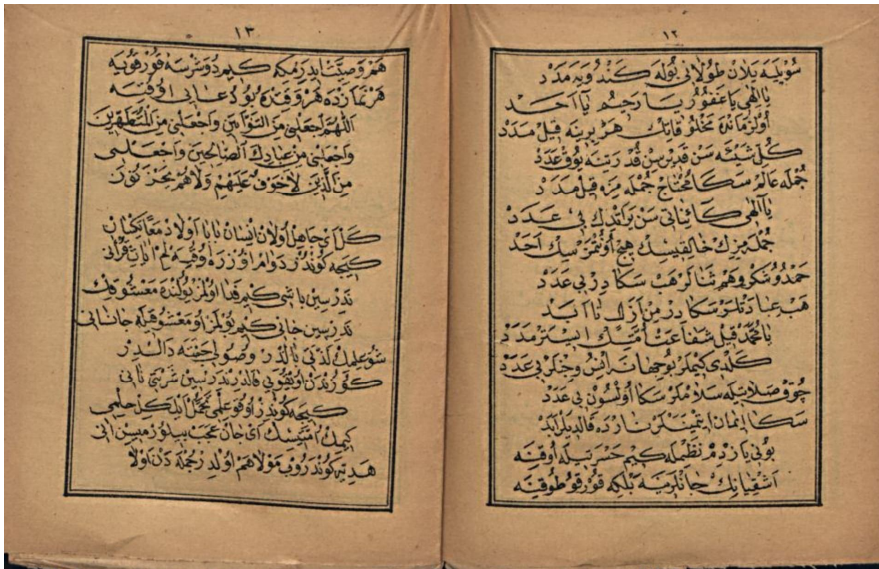 ١٢
سُويْلَيَه يَلَانْ طُولَانِى بُولَه كَنْدُويَه مَدَدْ
يَا اِلٰهِى يَا غَفُورُ يَا رَحِيمُ يَآ اَحَدْ
اُولْ زَمَانْدَه مَخْلُوقَاتِكْ هَرْ بِرِينَه قِيلْ مَدَدْ
كُلِّ شَيْئَه سَنْ قَدِيرْسِنْ قُدْرَتِينَه يُوقْ عَدَدْ
جُمْلَه عَالَمْ سَكَا مُحْتَاجْ جُمْلَه مِزَه قِيلْ مَدَدْ
يَا اِلٰهِى كَائِنَاتِى سَنْ يَرَاتْدِكْ بِى عَدَدْ
جُمْلَه مِزِكْ خَالِقِيسِكْ هِيچْ اُونُتْمَزْسِكْ اَحَدْ
حَمْدُ وشُكْرُ وهَمْ ثَنَالَرْ هَبْ سَكَا دِرْ بِى عَدَدْ
هَبْ عِبَادَتْلَرْ سَكَا دِرْ مِنْ اَزَلْ تَا اَبَدْ
يَا مُحَمَّدْ قِيلْ شَفَاعَتْ اُمَّتِكْ اِيسْتَرْ مَدَدْ
كَلْدِى كِيمْلَرْ بُو جِهَانَه اِنْسُ وجِنْلَرْ بِى عَدَدْ
چُوقْ صَلَاتِيلَه سَلَامْلَرْ سَكَا اُولْسُونْ بِى عَدَدْ
سَكَا اِيمَانْ اِيتْمَيَنْلَرْ نَارْدَه قَالَدِيلَرْ اَبَدْ
بُونِى يَازْدِمْ نَظْمِيلَه كِيمْ حَسْرَتِيلَه اُوقِنَه
اَشْقِيَانِكْ جَانْلَرِينَه بَلْكِه قُورْقُو طُوقِنَه
١٣
هَمْ وَصِيَّتْ اِيدَرَمْكِه كِيمْ دُوشَرْسَه قُورْقُويَه
هَرْ نَمَازْدَه هَرْ وَقِتْدَه بُو دُعَانِى اُوقِيَه
اَللّٰهُمَّ اجْعَلْنِى مِنَ التَّوَّابِينَ وَاجْعَلْنِى مِنَ الْمُتَطَهِّرِينَ
وَاجْعَلْنِى مِنْ عِبَادِكَ الصَّالِحِينَ وَاجْعَلْنِى
مِنَ الَّذِينَ لَا خَوْفٌ عَلَيْهِمْ وَلَا هُمْ يَحْزَنُونَ
كَلْ اَىْ جَاهِلْ اُولَانْ اِنْسَانْ
كِيجَه كُونْدُزْ دَوَامْ اُوزْرَه اُوقِيَه لِمْ
نَدِرْسِينْ بَاشِى كِيمْ فَدَا اُولْمَزْ يُولُنْدَه مَعْشُوقِكْ
نَدِرْسِينْ جَانِى كِيمْ بُولْمَزْ اُو مَعْشُوقِيلَه جَانَانِى
شُو عِلْمِكْ لَذَّتِى بَالْدِرْ وُصُولِى جَنَّتَه دَالْدِرْ
شَرْبَتِى
كِيجَه كُونْدُزْ اُوقُو عِلْمِى تَحَمُّلْ اَيْلَه كَلْ
اَىْ جَانْ عَجَبْ بِيلُورْمِيسِنْ اَنِى
هَدِيَّه كُونْدَرُوبْ مَوْلَا هَمْ اُولْدِرْ جُمْلَه دَنْ اَوْلَا